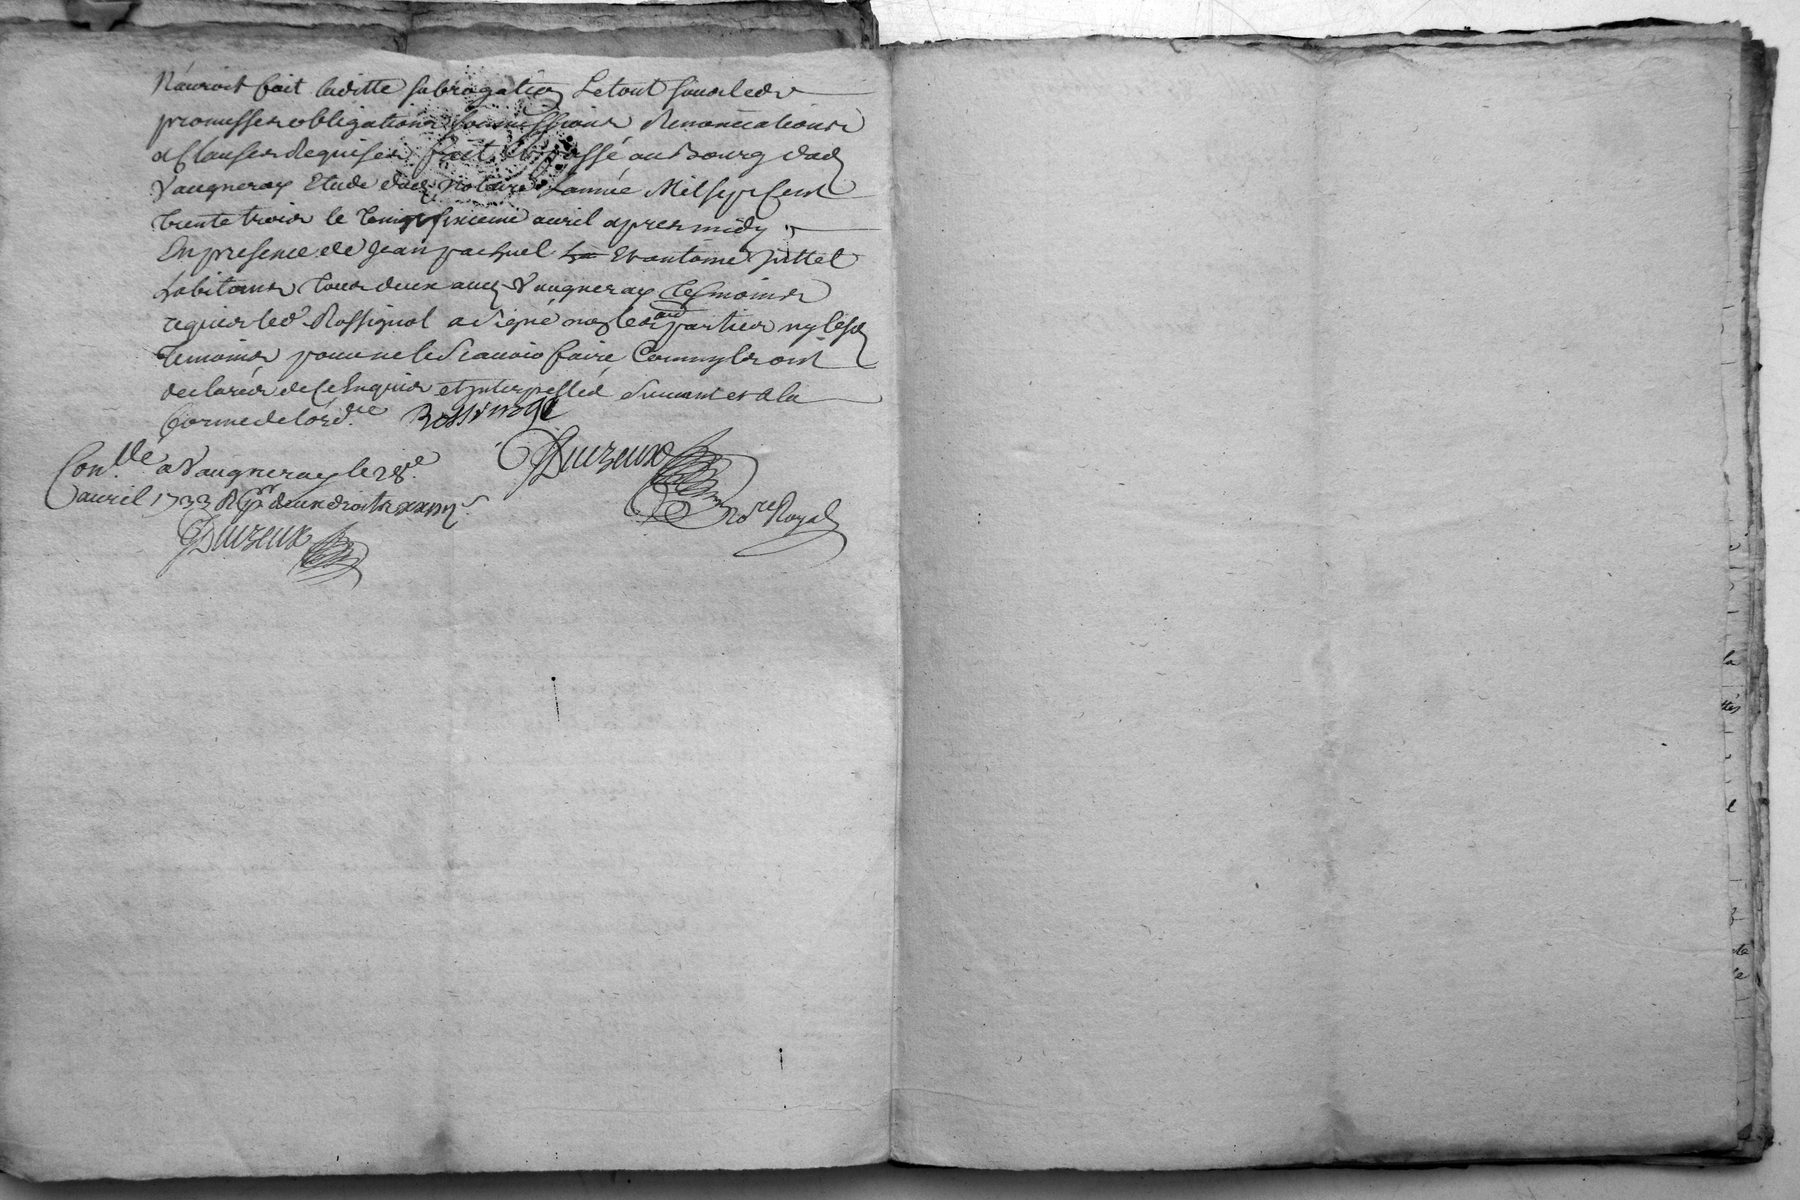 N'auroit fait laditte subrogation Le tout sous les d.
promesses obligations soumissions Renonciations
& Clauses Requises fait et passé au Bourg dud.
Vaugneray Etude dud. Notaire L'année Mil sept Cent
trente trois le vingt sixieme avril apres midy
En presence de Jean pachuel Et antoine pittel
habitans tous deux aud. Vaugneray temoins
requis led. Rossignol a signé non les d. parties ny lesd.
temoins pour ne le scavoir faire Comm'yls ont
declarés de Ce Enquis et Interpellés suivant et a la
forme de l'ord.ce Rossinogl
Duzeux
No.re Royal
Con.llé a Vaugneray le 28.e
avril 1733 R deux droits
Duzeux